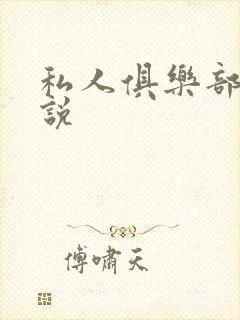 私人俱樂部
說
傅嘯天